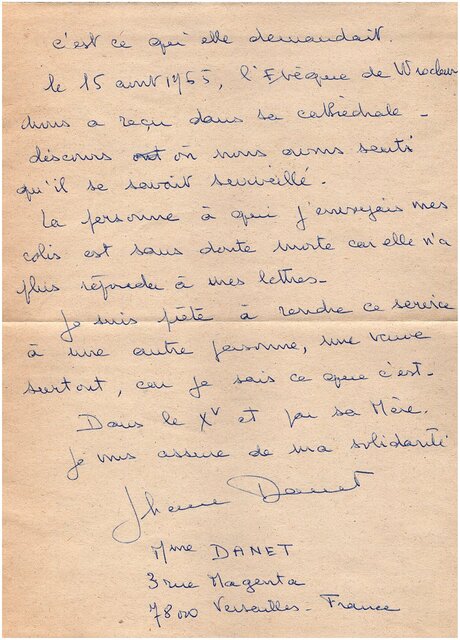 c'est ce qu'elle demandait.
le 15 avril 1965, l'Evêque de Wroclaw
nous a reçu dans sa cathédrale -
discours où nous avons senti
qu'il se savait surveillé.
La personne à qui j'envoyais mes
colis est sans doute morte car elle n'a
plus répondu à mes lettres -
Je suis prête à rendre ce service
à une autre personne, une veuve
surtout, car je sais ce que c'est -
Dans le Xt et par sa Mère.
Je vous assure de ma solidarité
Danet
Mme DANET
3 rue Magenta
78000 Versailles - France